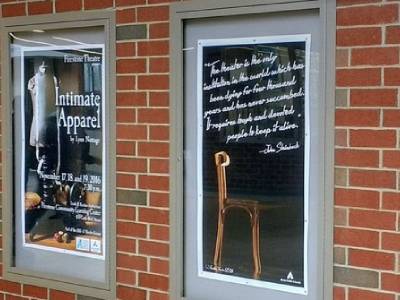 Firestone Theatre
Intimate
Apparel
by Lynn Nottage
November 17, 18, and 19, 2016
7:30 p.m.
Community Learning Center
"The theater is the only
institution in the world which has
been dying for four thousand
years and has never succumbed.
It requires tough and devoted
people to keep it alive."
-John Steinbeck